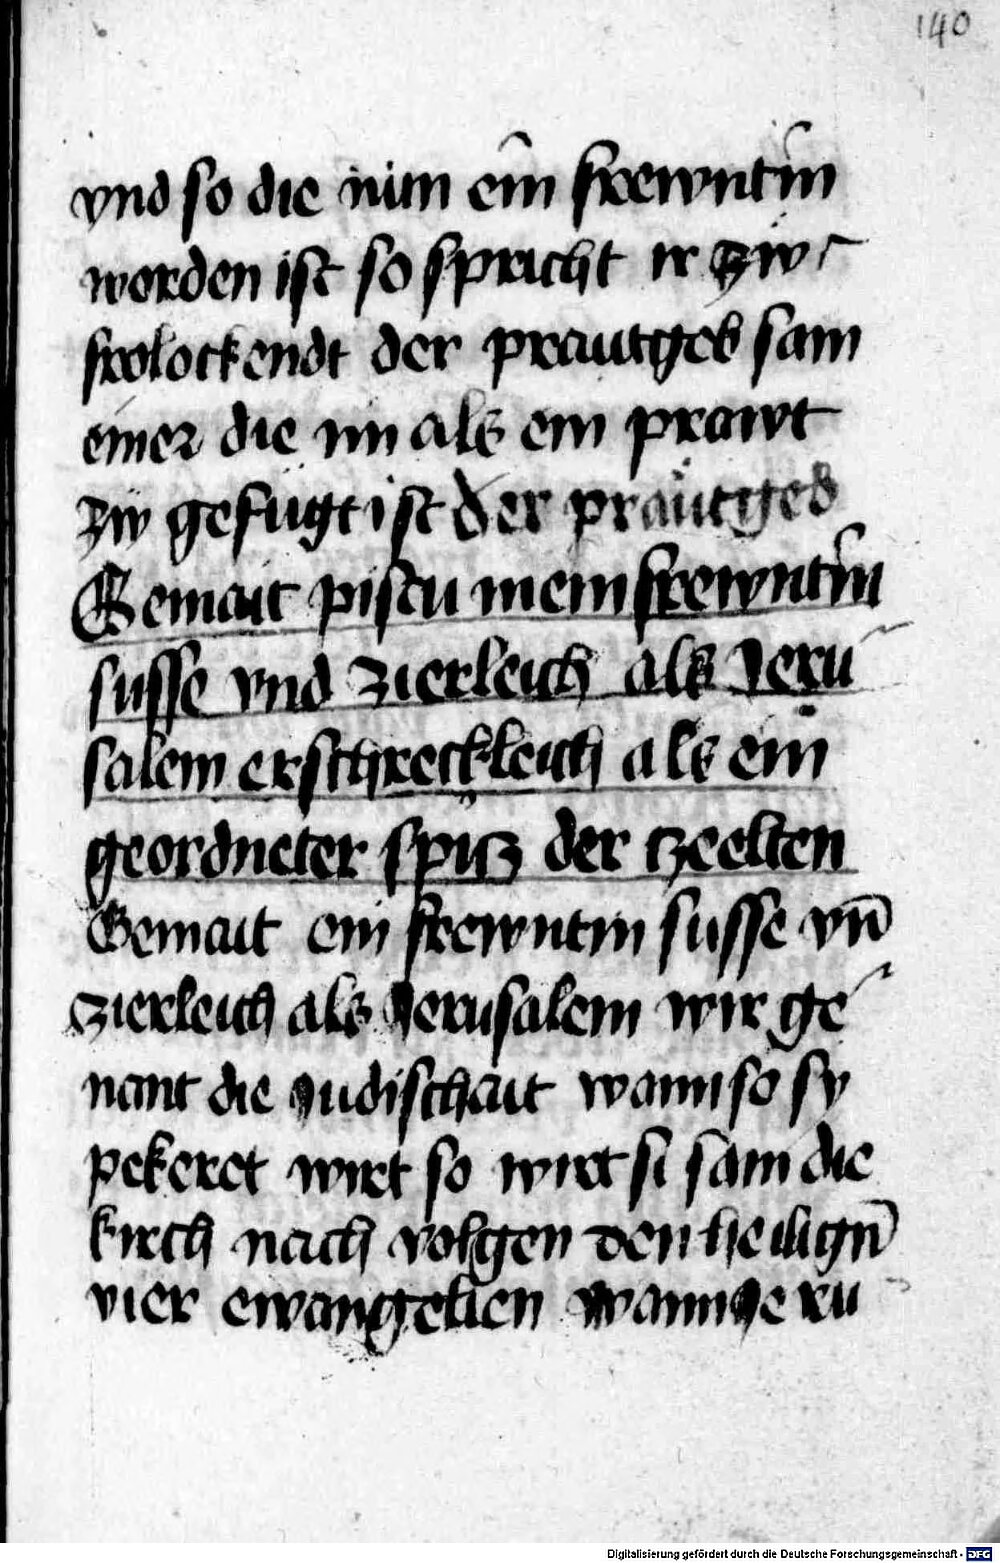 140
vnd so die nun ein frewntin
worden ist so spricht ir zw
frolockendt der prautgeb sam
einer die im als ein prawt
zw gefugt ist der prautgeb
Gemait pistu mein frewntin
susse vnd zierleich als Jeru
salem erschreckleich als ein
geordneter spitz der tzeelten
Gemait ein frewntin susse vn̄
zierleich als Jerusalem wir ge
nant die Judischait wann so sy
pekeret wirt so wirt si sam die
kirch nach volgen den heilign̄
vier ewangelien wann Jeru
Digitalisierung gefördert durch die Deutsche Forschungsgemeinschaft - DFG